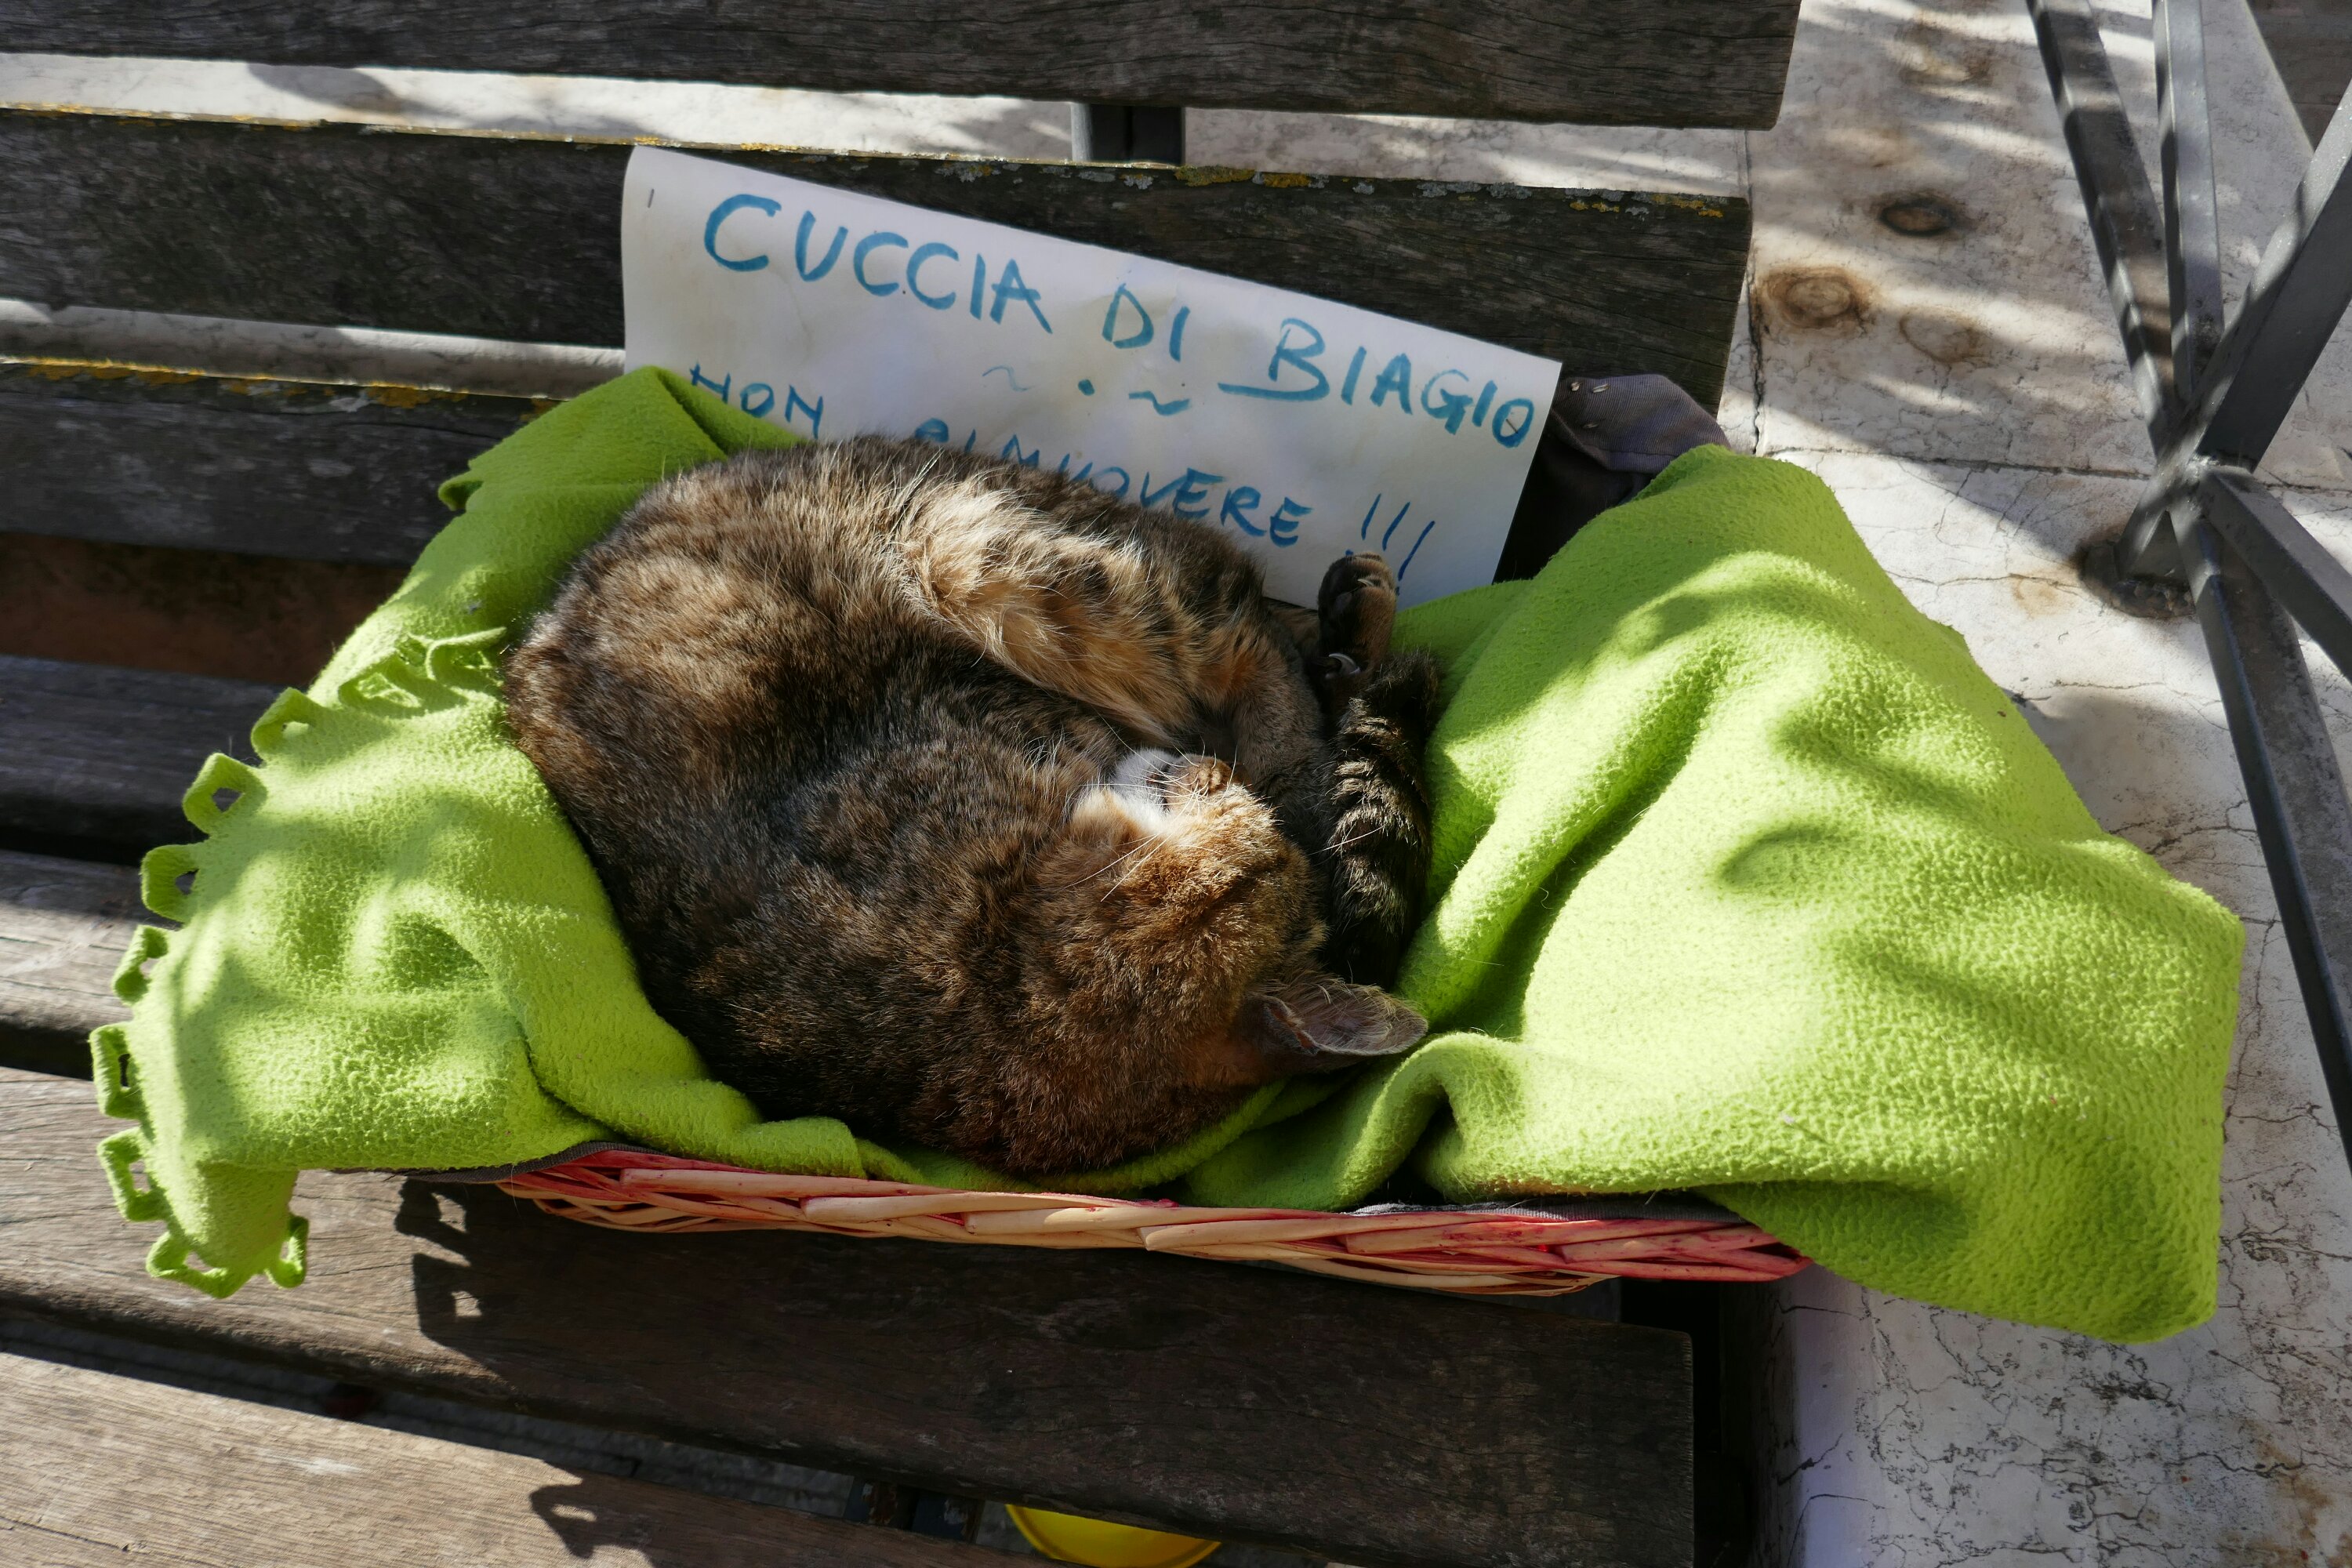 CUCCIA DI BIAGIO
~ • ~
NON RIMUOVERE !!!